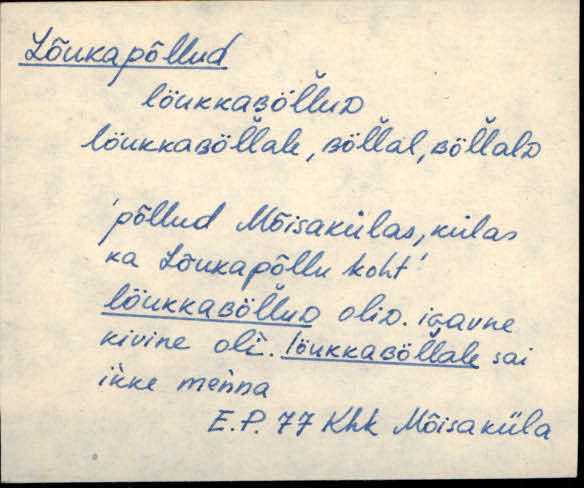 Lõukapõllud
lõukkaBõl̆luD
lõukkaBõl̆lale, Bõl̆lal, Bõl̆lalD
'põllud Mõisakülas, külas
ka Lõukapõllu koht'
lõukkaBõl̆luD oliD. iɢavne
kivine oli. lõukkaBõl̆lale sai
ikke menna
E.P. 77 Khk Mõisaküla